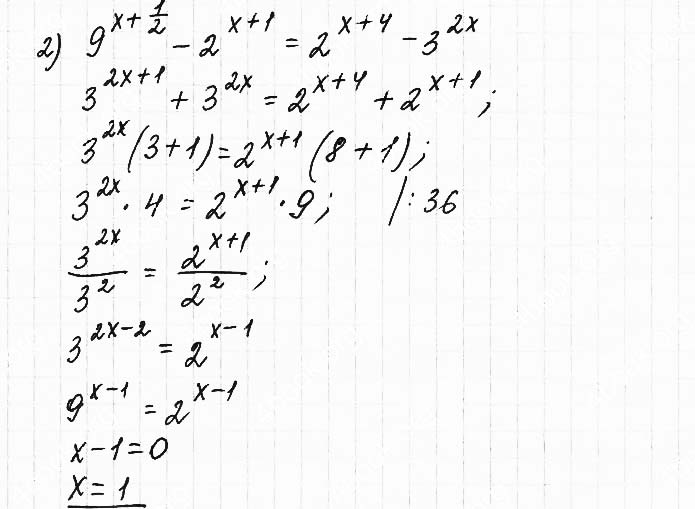 2) 9^{x+\frac{1}{2}} - 2^{x+1} = 2^{x+4} - 3^{2x}
3^{2x+1} + 3^{2x} = 2^{x+4} + 2^{x+1};
3^{2x}(3+1) = 2^{x+1}(8+1);
3^{2x} · 4 = 2^{x+1} · 9; /:36
\frac{3^{2x}}{3^2} = \frac{2^{x+1}}{2^2};
3^{2x-2} = 2^{x-1}
9^{x-1} = 2^{x-1}
x-1=0
x=1